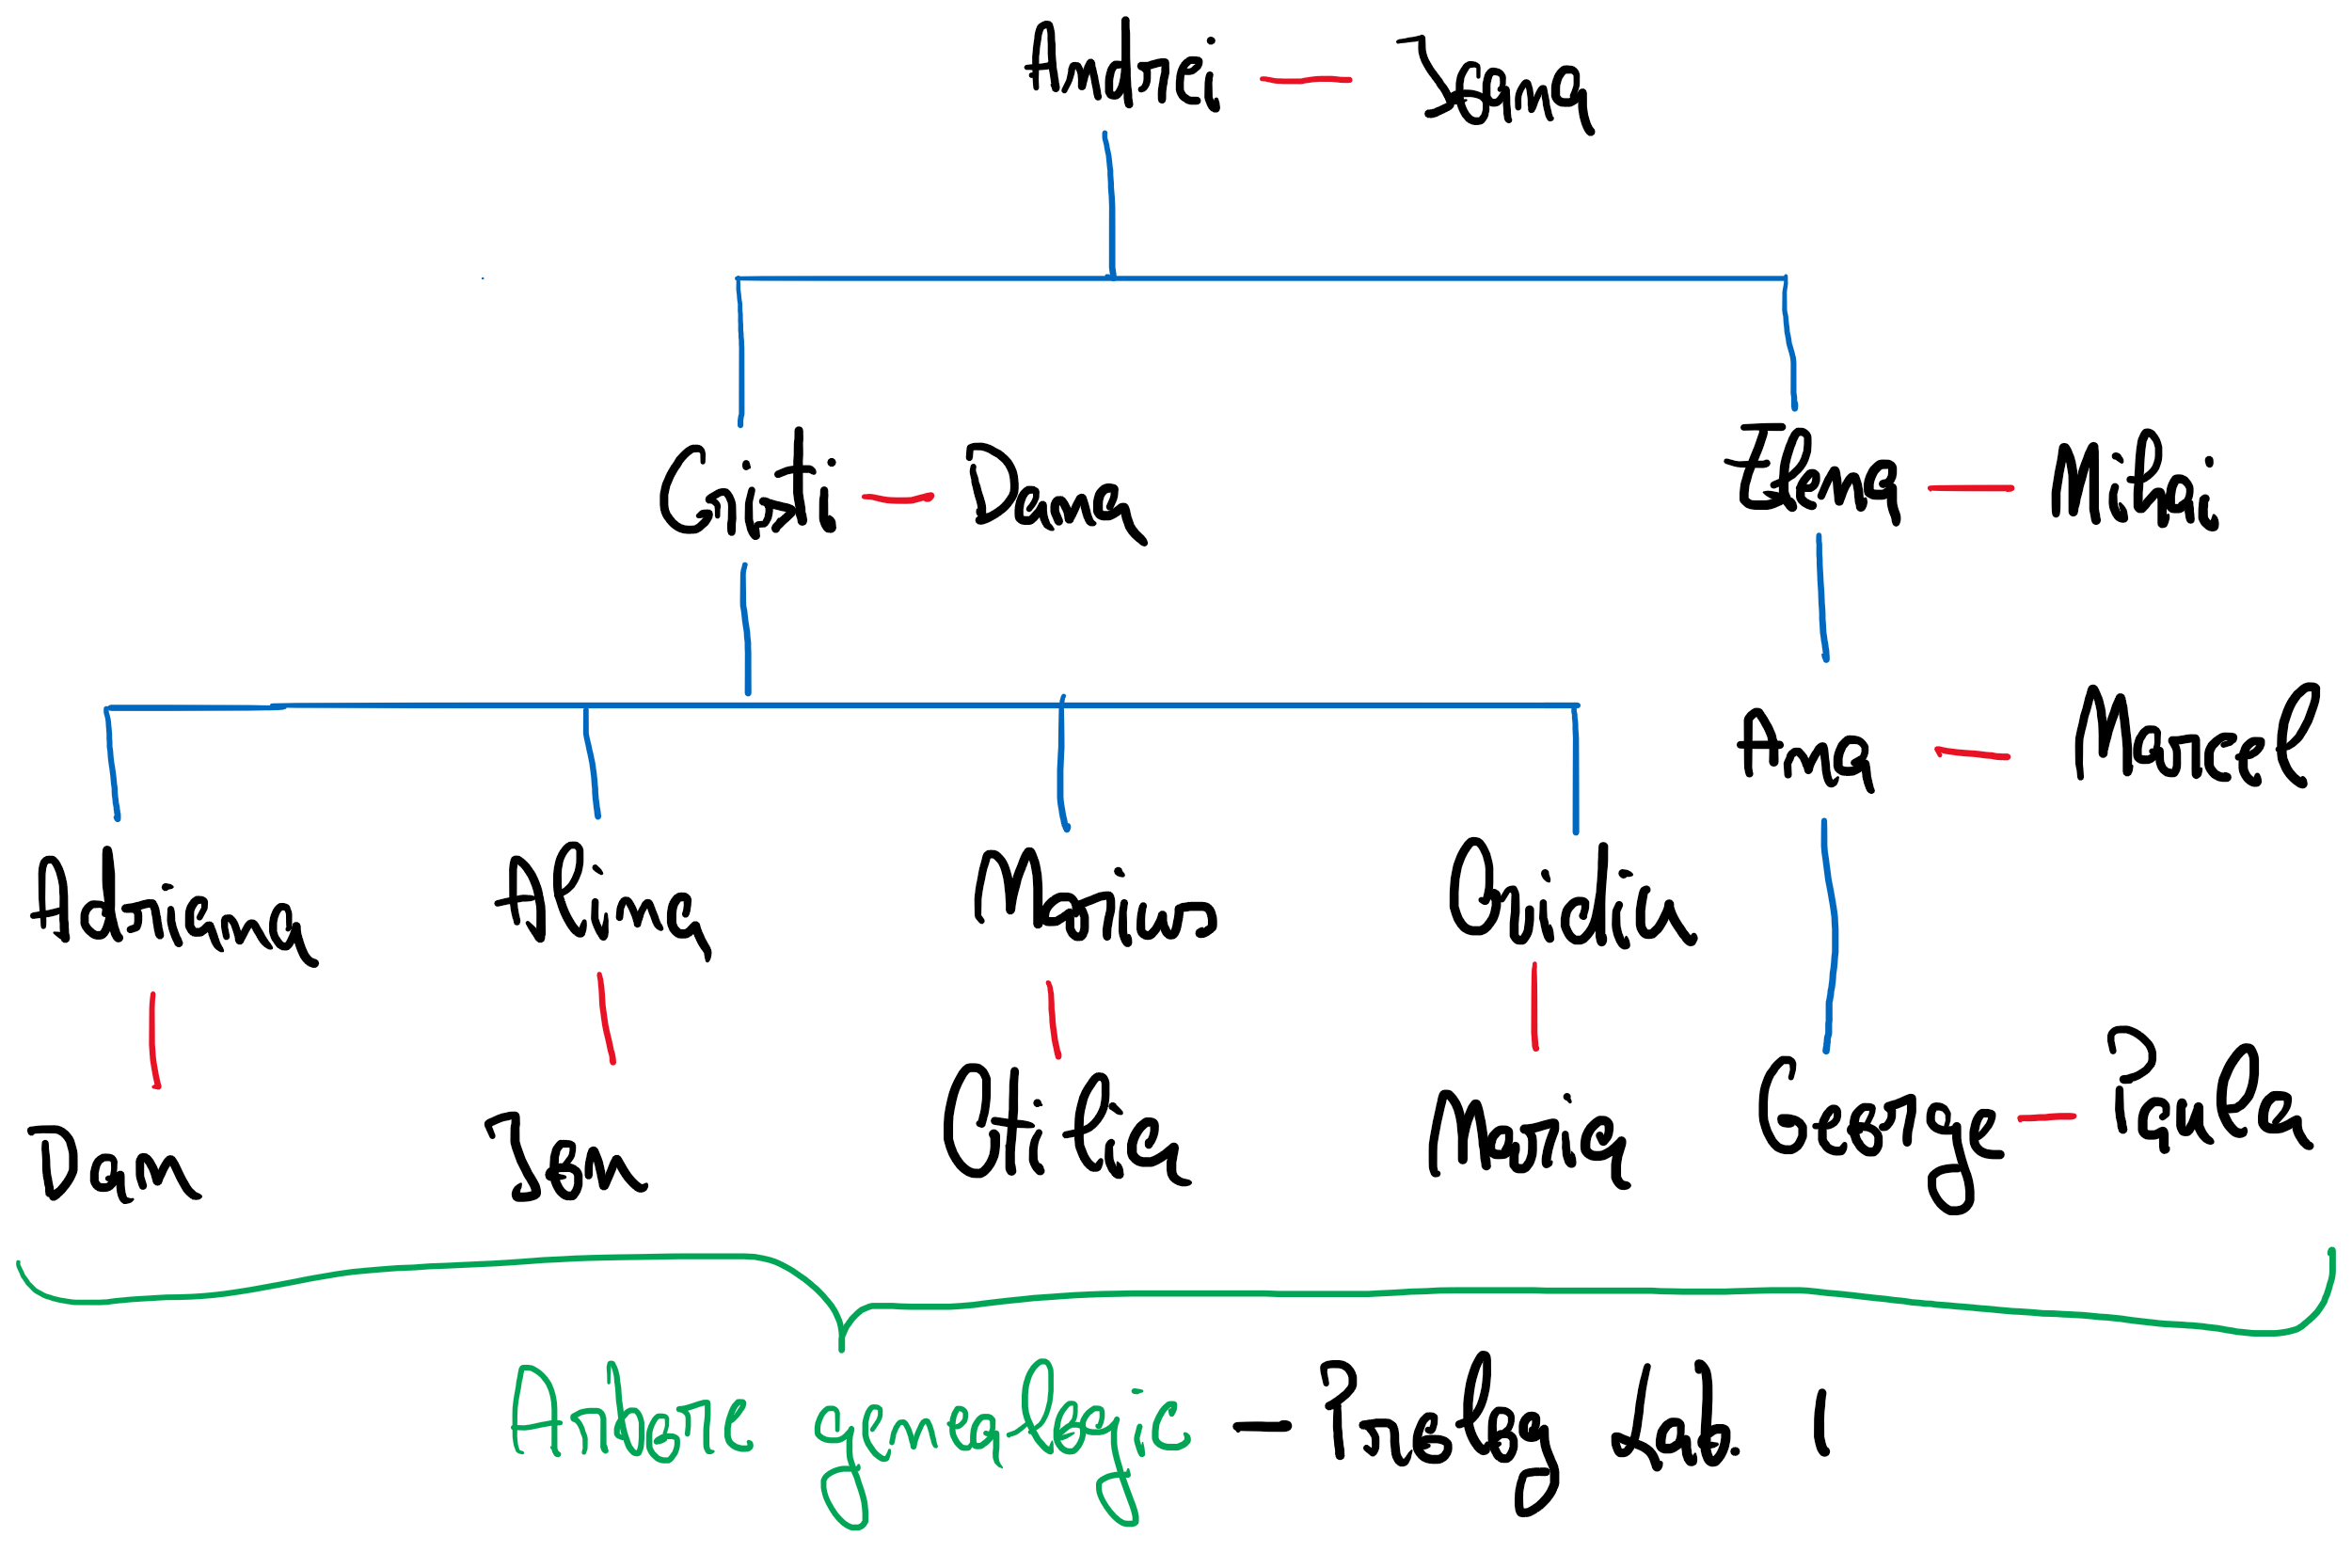 Andrei — Ioana
Cristi — Dana
Elena — Mihai
Ana — Marcel
Adriana Alina Marius Ovidiu
Dan Ion Otilia Maria George — Paula
Arbore genealogic - Prolog Lab. 1